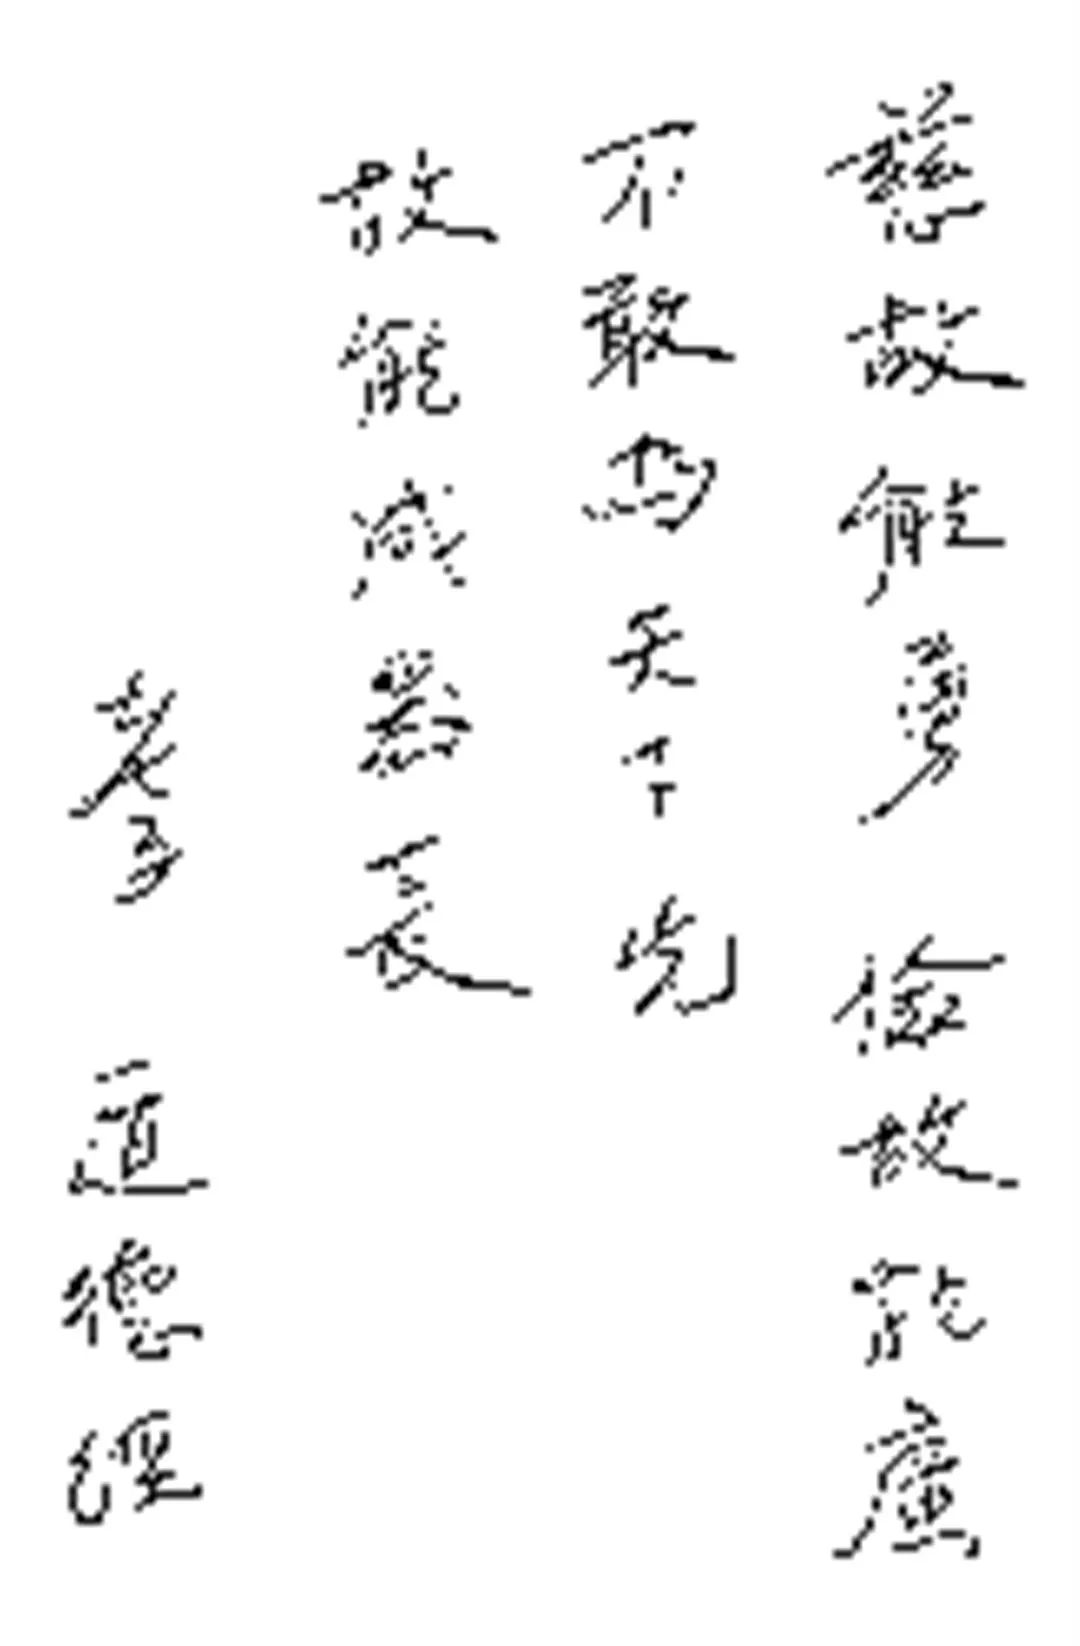 慈故能勇 儉故能廣
不敢為天下先
故能成器長
老子 道德經